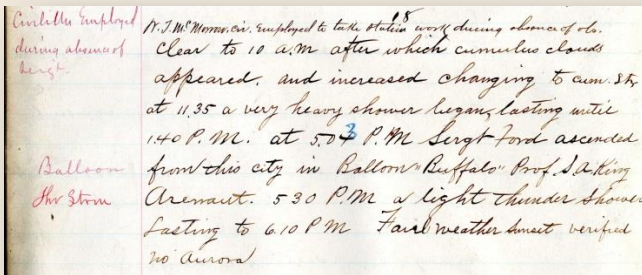 Civilian Employed
during absence of
Sergt.
18
W. J. McMorrow, civ. Employed to take station work during absence of obs.
Clear to 10 a.m after which cumulus clouds
appeared, and increased changing to cum. St
at 11.35 a very heavy shower began, lasting until
1.40 P.M. at 5.03 P.M Sergt Ford ascended
Balloon
from this city in Balloon "Buffalo" Prof. S. A. King
Thr Storm
Areonaut. 530 P.M a light thunder shower
Lasting to 6.10 P M Fair weather sunset verified
no aurora